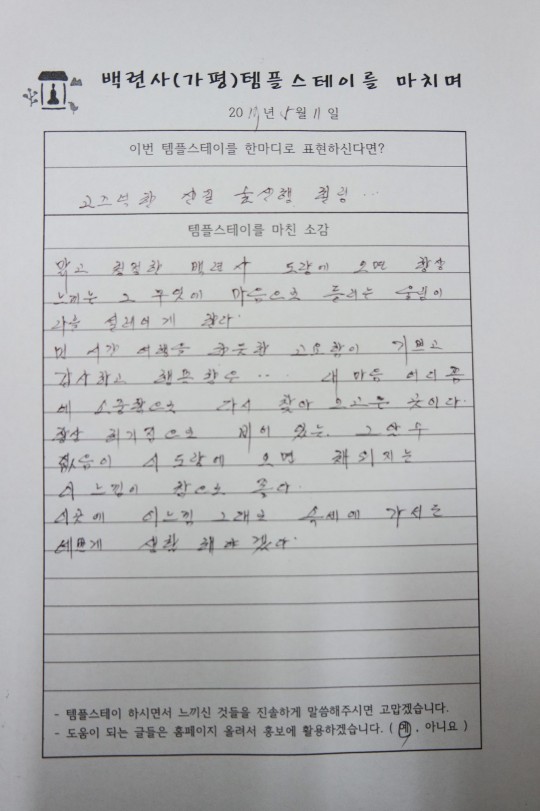 백련사(가평)템플스테이를 마치며
2019년 5월 11일
이번 템플스테이를 한마디로 표현하신다면?
고즈넉한 산길 숲산행 힐링 …
템플스테이를 마친 소감
맑고 청정한 백련사 도량에 오면 항상
느끼는 그 무엇에 마음으로 들리는 울림이
나를 설레이게 한다.
먼 시간 여행을 온듯한 고요함이 기쁘고
감사하고 행복할수 … 내 마음 어디쯤
에 소중함으로 다시 찾아 오고픈 곳이다.
항상 허기적으로 비어 있는 그 알수
없음이 이 도량에 오면 채워지는
이 느낌이 참으로 좋다.
이곳에 이느낌 그대로 속세에 가서도
예쁘게 생활 해야 겠다.
- 템플스테이 하시면서 느끼신 것들을 진솔하게 말씀해주시면 고맙겠습니다.
- 도움이 되는 글들은 홈페이지 올려서 홍보에 활용하겠습니다. ( 예 , 아니요 )